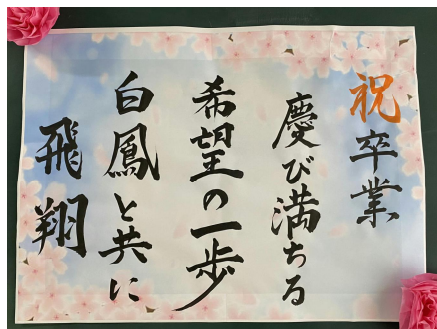 祝卒業
慶び満ちる
希望の一歩
白鳳と共に
飛翔